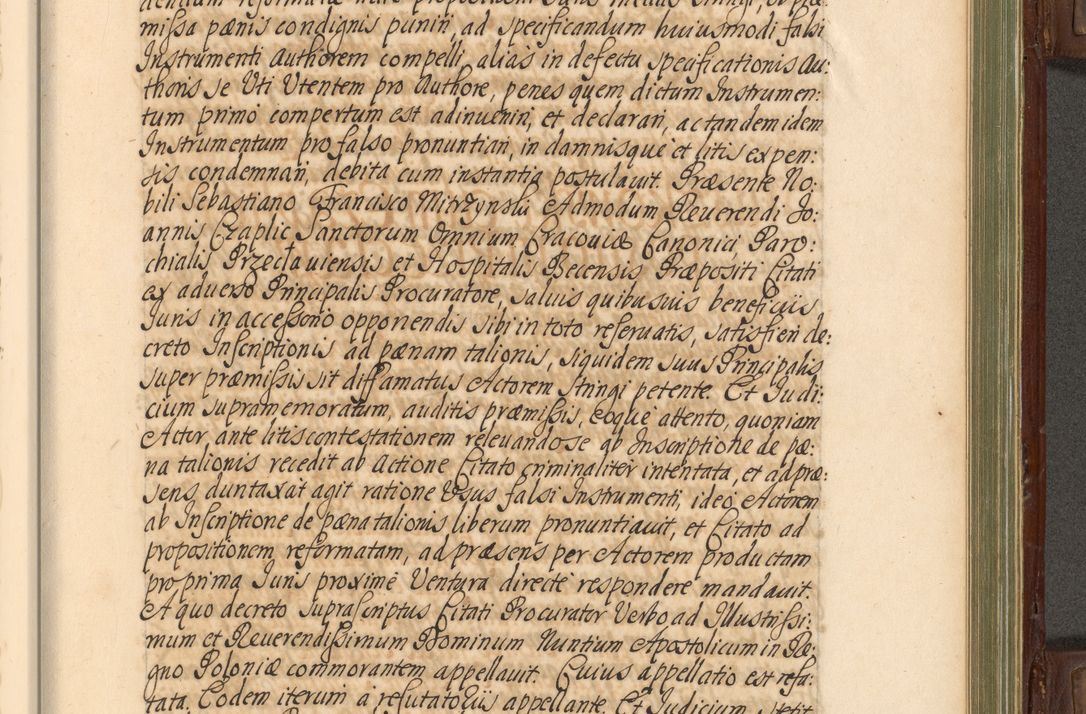 missa pænis condignis puniri, ad specificandum huiusmodi falsi
Instrumenti authorem compelli, alias in defectu specificationis Au:
thoris se Uti Utentem pro Authore, penes quem dictum Instrumen:
tum primo compertum est adinueniri, et declarari, ac tandem idem
Instrumentum pro falso pronuntiari, in damnisque et litis expen:
sis condemnari, debita cum instantia postulauit. Præsente No:
bili Sebastiano Francisco Mirzynski Admodum Reuerendi Jo:
annis Czaplic Sanctorum Omnium Cracouiæ Canonici, Paro:
chialis Przecłauiensis et Hospitalis Becensis Præpositi Citati
ex aduerso Principalis Procuratore, saluis quibusuis beneficiis
Iuris in accessorio opponendis sibi in toto reseruatis, satisfieri de:
creto Inscriptionis ad pænam talionis, siquidem suus Principalis
super præmissis sit diffamatus Actorem stringi petente. Et Iudi:
cium supramemoratum, auditis præmissis, eoque attento, quoniam
Actor, ante litis contestationem releuando se ab Inscriptione de pæ:
na talionis recedit ab Actione Citato criminaliter intentata, et ad præ:
sens duntaxat agit ratione Usus falsi Instrumenti, ideo Actorem
ab Inscriptione de pæna talionis liberum pronuntiauit, et Citato ad
propositionem reformatam, ad præsens per Actorem productam
pro prima Iuris proxime Ventura directe respondere mandauit.
A quo decreto suprascriptus Citati Procurator Verbo ad Illustrissi:
mum et Reuerendissimum Dominum Nuntium Apostolicum in Re:
gno Poloniæ commorantem appellauit. Cuius appellatio est refu:
tata. Eodem iterum a refutatoriis appellante. Et Iudicium stetit